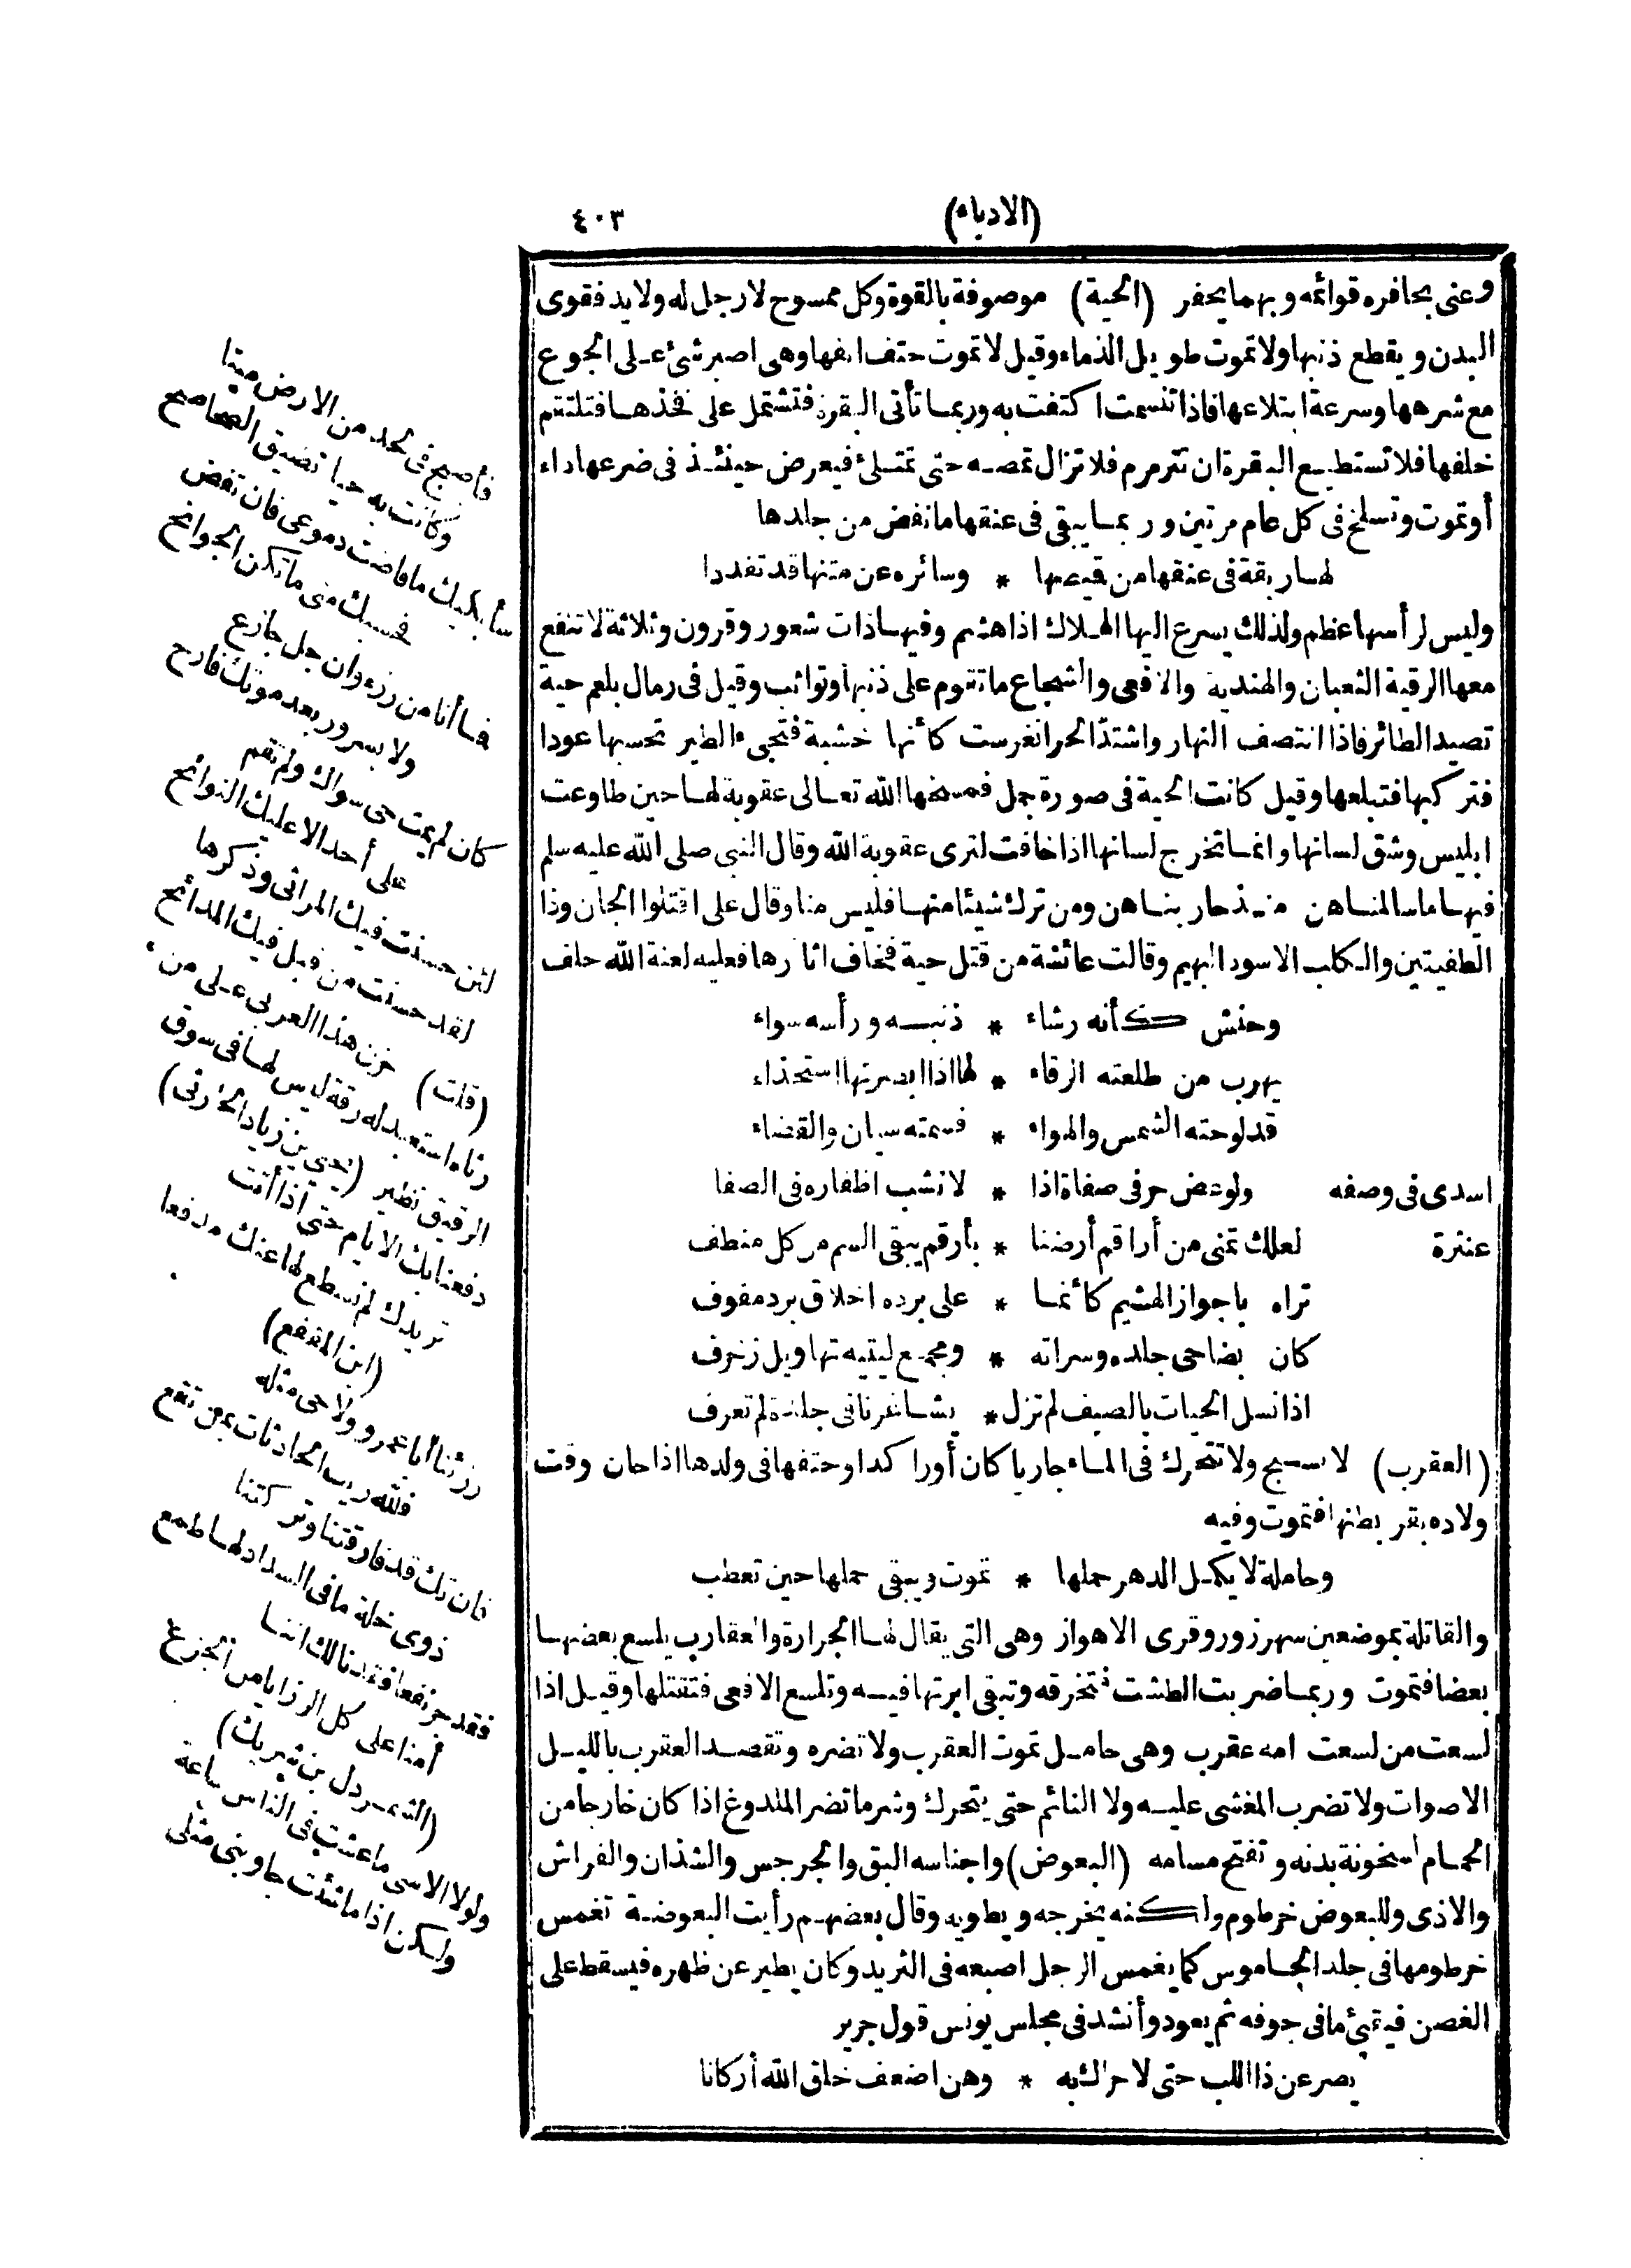 (الادباء)
٤٠٣
وعنى بحافره قوائمه وبهما يحفر (الحية) موصوفة بالقوة وكل ممسوح لا رجل له ولا يد فقوى
البدن ويقطع ذنبها ولا تموت طويل الذماء وقيل لا تموت حتف انفها وهى اصبر شئ على الجوع
مع شرهها وسرعة ابتلاعها فاذا تنسمت اكتفت به وربما تأتى البقرة فتشتمل على فخذها فتلتقم
خلفها فلا تستطيع البقرة ان تترمرم فلا تزال تمصه حتى تمتلئ فيعرض حينئذ فى ضرعها داء
أو تموت وتسلخ فى كل عام مرتين وربما يبقى فى عنقها ما نفض من جلدها
لها ربقة فى عنقها من قيصها * وسائره عن متنها قد تقددا
وليس لرأسها عظم ولذلك يسرع اليها الهلاك اذا هشم وفيها ذات شعور وقرون وثلاثة لا تنفع
معها الرقية الثعبان والهندية والافعى والشجاع ما تقوم على ذنبها وتواثب وقيل فى رمال بلعم حية
تصيد الطائر فاذا انتصف النهار واشتد الحر انغرست كأنها خشبة فتجىء الطير تحسبها عودا
فتركبها فتبلعها وقيل كانت الحية فى صورة جمل فمسخها الله تعالى عقوبة لها حين طاوعت
ابليس وشق لسانها وانما تخرج لسانها اذا خافت لترى عقوبة الله وقال النبى صلى الله عليه سلم
فيها ما سالمناهن منذ حاربناهن ومن ترك شيئا منها فليس منا وقال على اقتلوا الجان وذا
الطفيتين والكلب الاسود البهيم وقالت عائشة من قتل حية فخاف اثارها فعليه لعنة الله خلف
وحنش كأنه رشاء * ذنبه ورأسه سواء
يهرب من طلعته الرقاء * لها اذا ابصرتها استخذاء
قد لوحته الشمس والهواء * قسمته سيان والقضاء
اسدى فى وصفه ولو عض حرفى صفاة اذا * لانشب اظفاره فى الصفا
عنترة لعلك تمنى من أراقم أرضنا * بأرقم يبقى السم من كل منطف
تراه باجواز الهشيم كأنما * على برده اخلاق برد مفوف
كان بضاحى جلده وسراته * ومجمع ليتيه تهاويل زخرف
اذا نسل الحيات بالصيف لم تزل *
(العقرب) لا تسبح ولا تتحرك فى الماء جاريا كان أو راكدا وحتفها فى ولدها اذا حان وقت
ولاده بقر بطنها فتموت وفيه
وحاملة لا يكمل الدهر حملها * تموت ويبقى حملها حين تعطب
والقاتلة بموضعين سهرزور وقرى الاهواز وهى التى يقال لها الجرارة والعقارب يلسع بعضها
بعضا فتموت وربما ضربت الطشت فتخرقه وتبقى ابرتها فيه وتلسع الافعى فتقتلها وقيل اذا
لسعت من لسعت امه عقرب وهى حامل تموت العقرب ولا تضره وتقصد العقرب بالليل
الاصوات ولا تضرب المغشى عليه ولا النائم حتى يتحرك وشر ما تضر الملدوغ اذا كان خارجا من
الحمام لسخونة بدنه وتفتح مسامه (البعوض) واجناسه البق والجرجس والشذان والفراش
والاذى وللبعوض خرطوم ولكنه يخرجه ويطويه وقال بعضهم رأيت البعوضة تغمس
خرطومها فى جلد الجاموس كما يغمس الرجل اصبعه فى الثريد وكان يطير عن ظهره فيسقط على
الغصن فيتقئ ما فى جوفه ثم يعود وأنشد فى مجلس يونس قول جرير
يصرعن ذا اللب حتى لا حراك به * وهن اضعف خلق الله أركانا
فأصبح فى لحد من الارض ميتا
وكانت به حيا تضيق الصحاصح
سأبكيك ما فاضت دموعى فان تغض
فحسبك منى ما تكن الجوانح
فما أنا من رزء وان جل جازع
ولا بسرور بعد موتك فارح
كان لم يمت حى سواك ولم تقم
على أحد الا عليك النوائح
لئن حسنت فيك المراثى وذكرها
لقد حسنت من قبل فيك المدائح
(قلت) حزن هذا العربى على من
رثاه استعبد له رقة ليس لها فى سوق
الرقيق نظير (يحيى بن زياد الحارثى)
دفعنا بك الايام حتى اذا أتت
تريدك لم نسطع لها عنك مدفعا
(ابن المقفع)
رزئنا أبا عمرو ولا حى مثله
فلله ريب الحادثات بمن تقع
فان تك قد فارقتنا وتركتنا
ذوى خلة ما فى انسداد لها طمع
فقد جر نفعا فقدنا لك اننا
أمنا على كل الرزايا من الجزع
(الشمردل بن شريك)
ولولا الاسى ما عشت فى الناس ساعة
ولكن اذا ما شئت جاوبنى مثلى